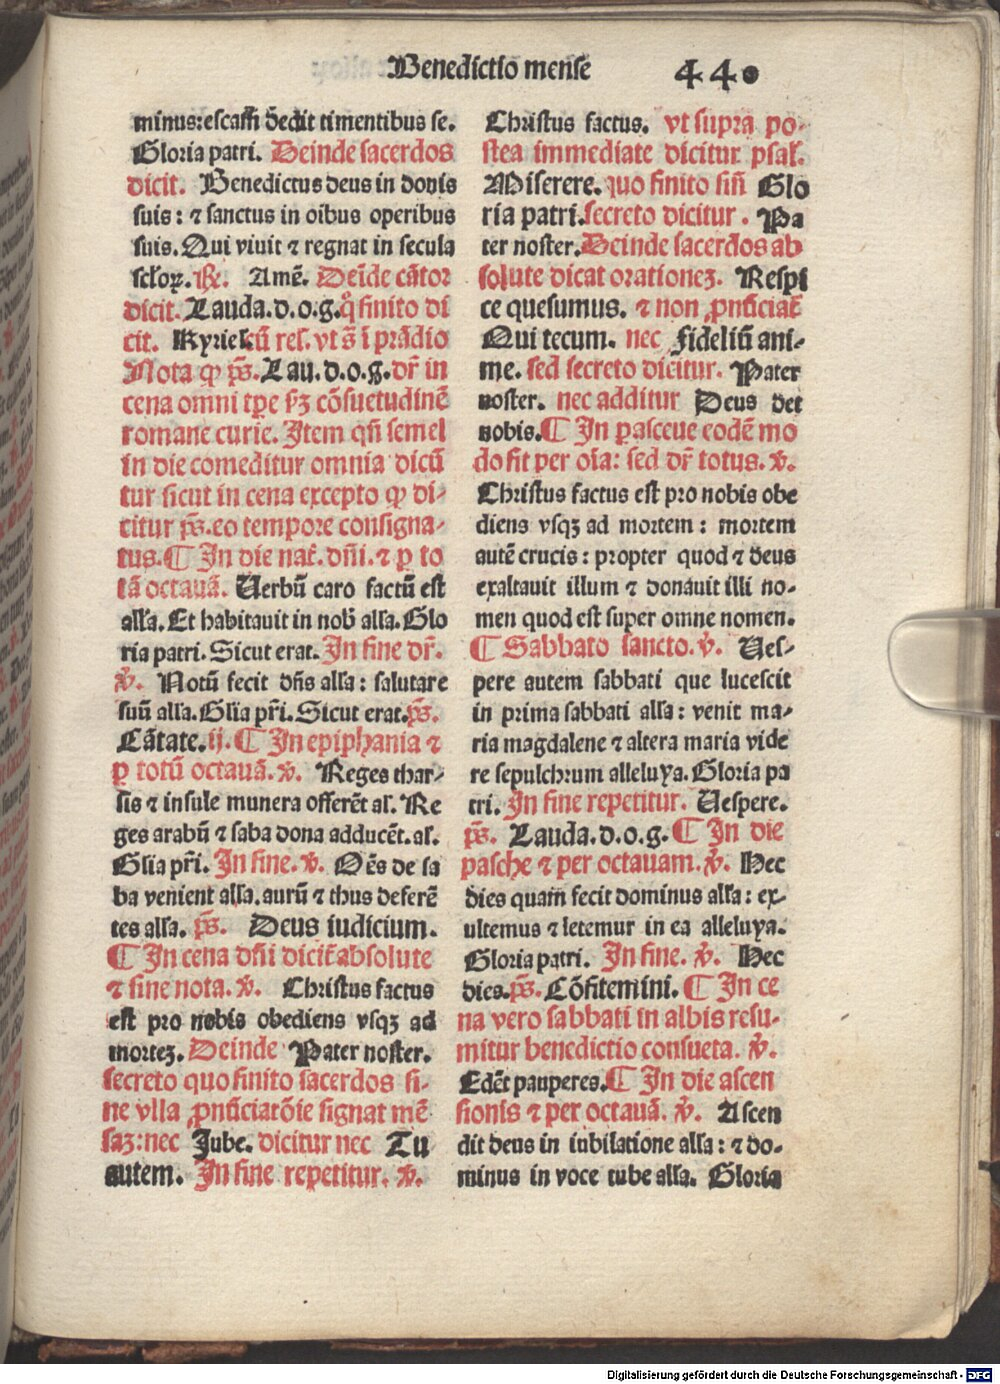 Benedictio mense 440
minus:escam̄ dedit timentibus se.
Gloria patri. Deinde sacerdos
dicit. Benedictus deus in donis
suis: ⁊ sanctus in oībus operibus
suis. Qui viuit ⁊ regnat in secula
seclor̄ꝝ. ℟. Amē. Deīde cātor
dicit. Lauda.d.o.g.q̄ finito di
cit. Kyriel̄ cū rel. vt s̄ ī prādio
Nota ꝙ p̄s. Lau.d.o.g.dr̄ in
cena omni tpe ẜꝫ cōsuetudinē
romane curie. Item qn̄ semel
in die comeditur omnia dicū
tur sicut in cena excepto ꝙ di-
citur p̄s. eo tempore consigna-
tus. ¶ In die nat̄. dn̄i. ⁊ ꝑ to
tā octauā. Uerbū caro factū est
alľa. Et habitauit in nob̄ alľa. Glo
ria patri. Sicut erat. In fine dr̄.
℣. Notū fecit dn̄s alľa: salutare
suū alľa. Glīa pr̄i. Sicut erat. p̄s.
Cātate. ij. ¶ In epiphania ⁊
ꝑ totū octauā. ℣. Reges thar-
sis ⁊ insule munera offerēt al. Re
ges arabū ⁊ saba dona adducēt. al.
Glīa pr̄i. In fine. ℣. Oēs de sa
ba venient alľa. aurū ⁊ thus deferē
tes alľa. p̄s. Deus iudicium.
¶ In cena dn̄i dicit̄ absolute
⁊ sine nota. ℣. Christus factus
est pro nobis obediens vsqꝫ ad
morteꝫ. Deinde Pater noster.
secreto quo finito sacerdos si-
ne vlla ꝓnūciatōie signat mē
saꝫ: nec Jube. dicitur nec Tu
autem. In fine repetitur. ℣.
Christus factus. vt supra po-
stea immediate dicitur psal.
Miserere. quo finito sin̄ Glo
ria patri. secreto dicitur. Pa
ter noster. Deinde sacerdos ab
solute dicat orationeꝫ. Respi
ce quesumus. ⁊ non ꝓnūciat̄
Qui tecum. nec fideliū ani-
me. sed secreto dicitur. Pater
noster. nec additur Deus det
nobis. ¶ In parasceue eodē mo
do fit per oīa: sed dr̄ totus. ℣.
Christus factus est pro nobis obe
diens vsqꝫ ad mortem: mortem
autē crucis: propter quod ⁊ deus
exaltauit illum ⁊ donauit illi no-
men quod est super omne nomen.
¶ Sabbato sancto. ℣. Ues-
pere autem sabbati que lucescit
in prima sabbati alľa: venit ma-
ria magdalene ⁊ altera maria vide
re sepulchrum alleluya. Gloria pa
tri. In fine repetitur. Uespere.
p̄s. Lauda.d.o.g. ¶ In die
pasche ⁊ per octauam. ℣. Hec
dies quam fecit dominus alľa: ex-
ultemus ⁊ letemur in ea alleluya.
Gloria patri. In fine. ℣. Hec
dies. p̄s. Cōfitemini. ¶ In ce
na vero sabbati in albis resu-
mitur benedictio consueta. ℣.
Edēt pauperes. ¶ In die ascen
sionis ⁊ per octauā. ℣. Ascen
dit deus in iubilatione alľa: ⁊ do-
minus in voce tube alľa. Gloria
Digitalisierung gefördert durch die Deutsche Forschungsgemeinschaft - DFG